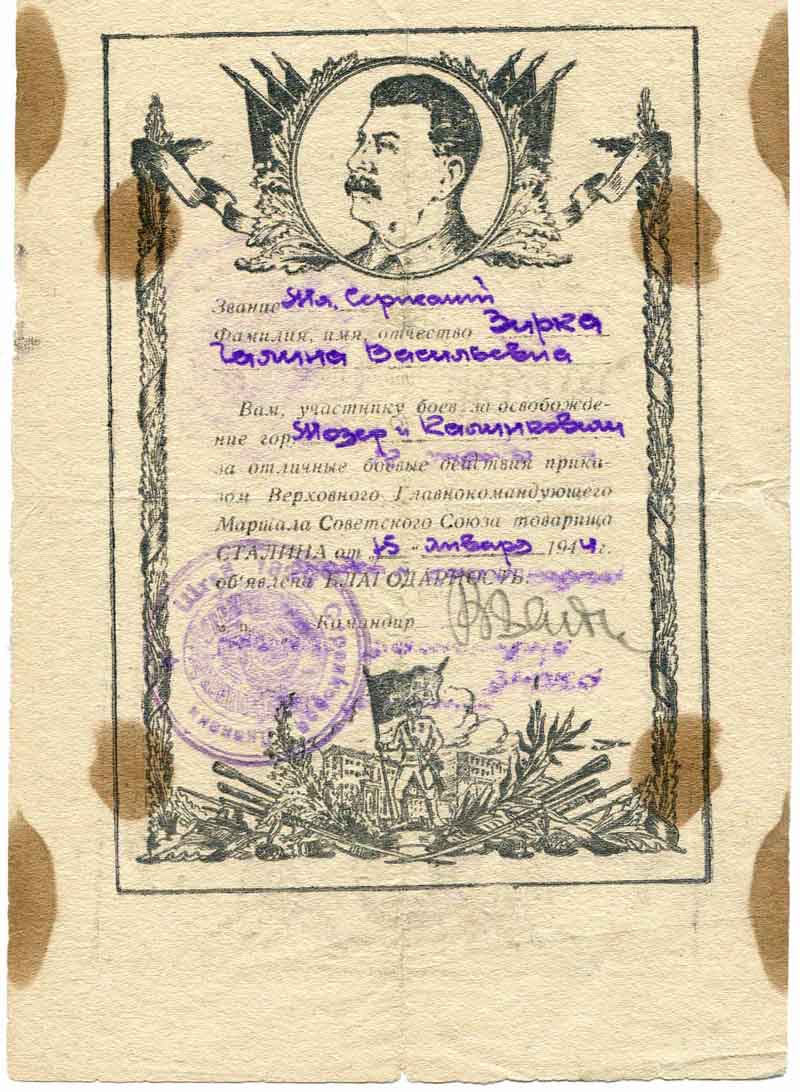 Звание Мл. Сержант
Фамилия, имя, отчество Зирка
Галина Васильевна
Вам, участнику боев за освобожде-
ние гор. Мозер и Калинковичи
за отличные боевые действия прика-
зом Верховного Главнокомандующего
Маршала Советского Союза товарища
СТАЛИНА от „15 " января 1944 г.
об'явлена БЛАГОДАРНОСТЬ.
Командир